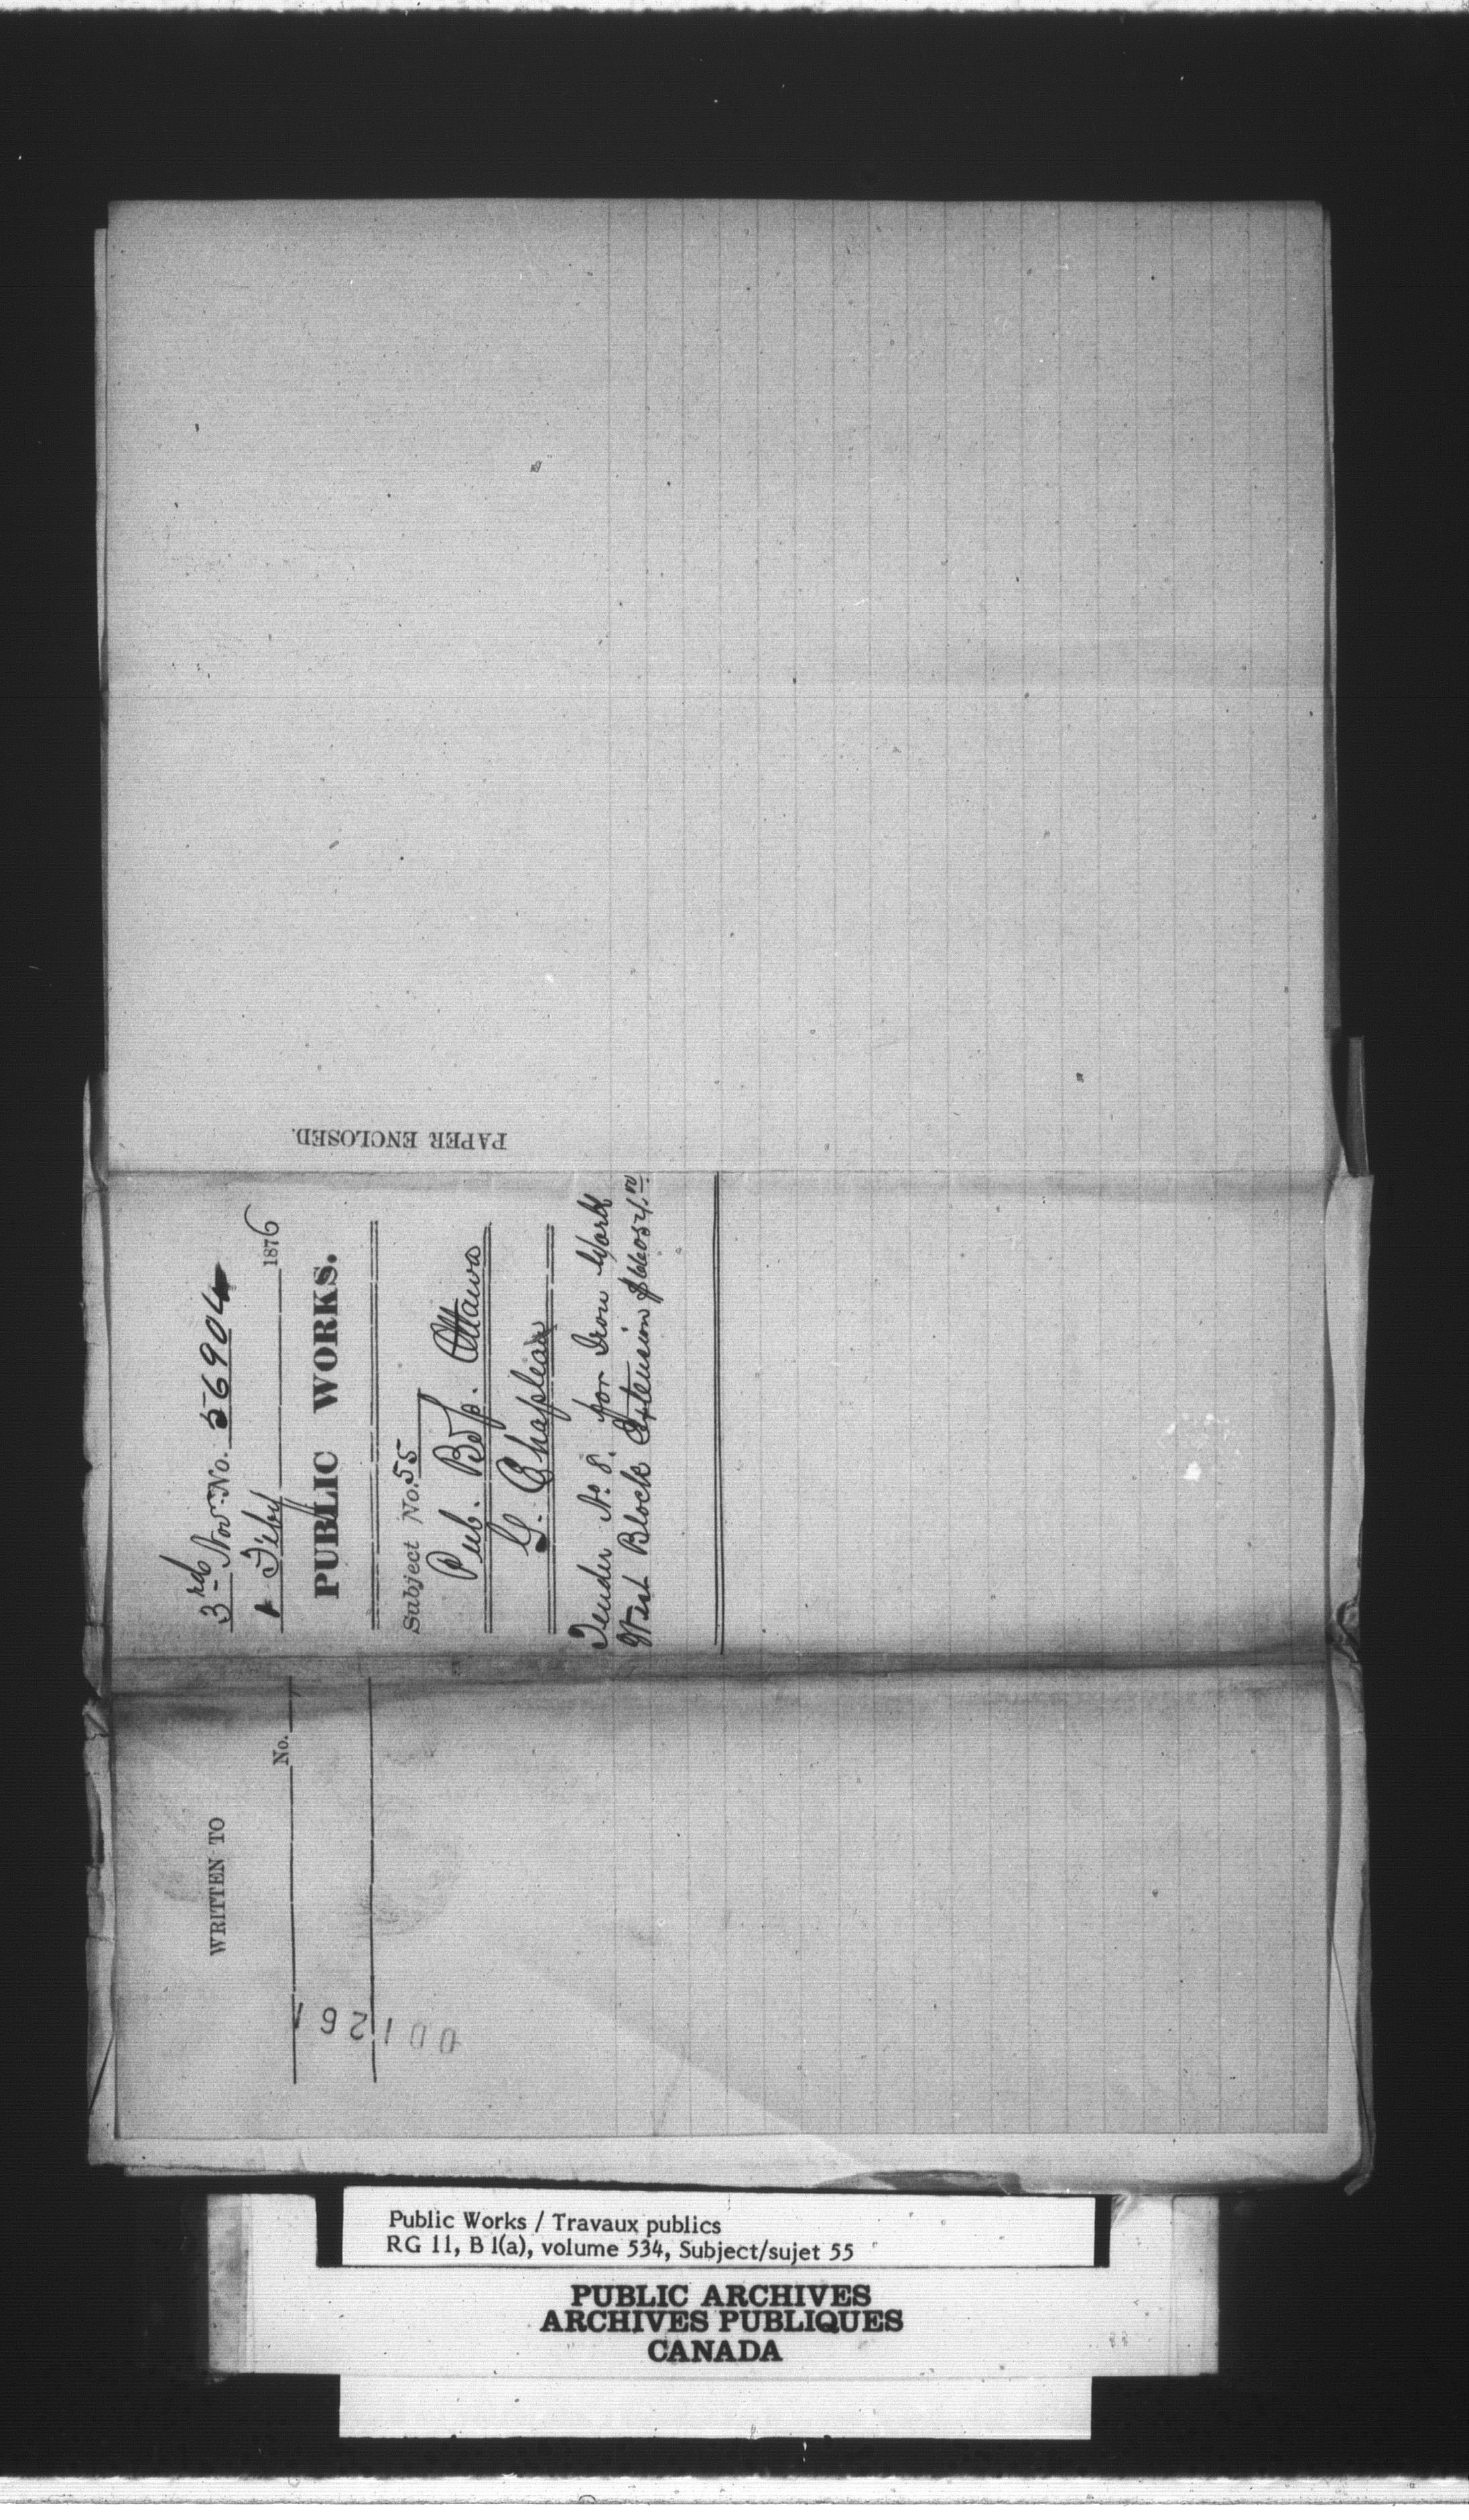 PAPER ENCLOSED.
3rd Nov. No. 56904
1 Feby 1876
PUBLIC WORKS.
Subject No. 55
Pub. Bdgs. Ottawa
G. Chapleau
Tender No. 8. for Iron Work
West Block Extension
WRITTEN TO
No.
001261
Public Works / Travaux publics
RG 11, B 1(a), volume 534, Subject/sujet 55
PUBLIC ARCHIVES
ARCHIVES PUBLIQUES
CANADA